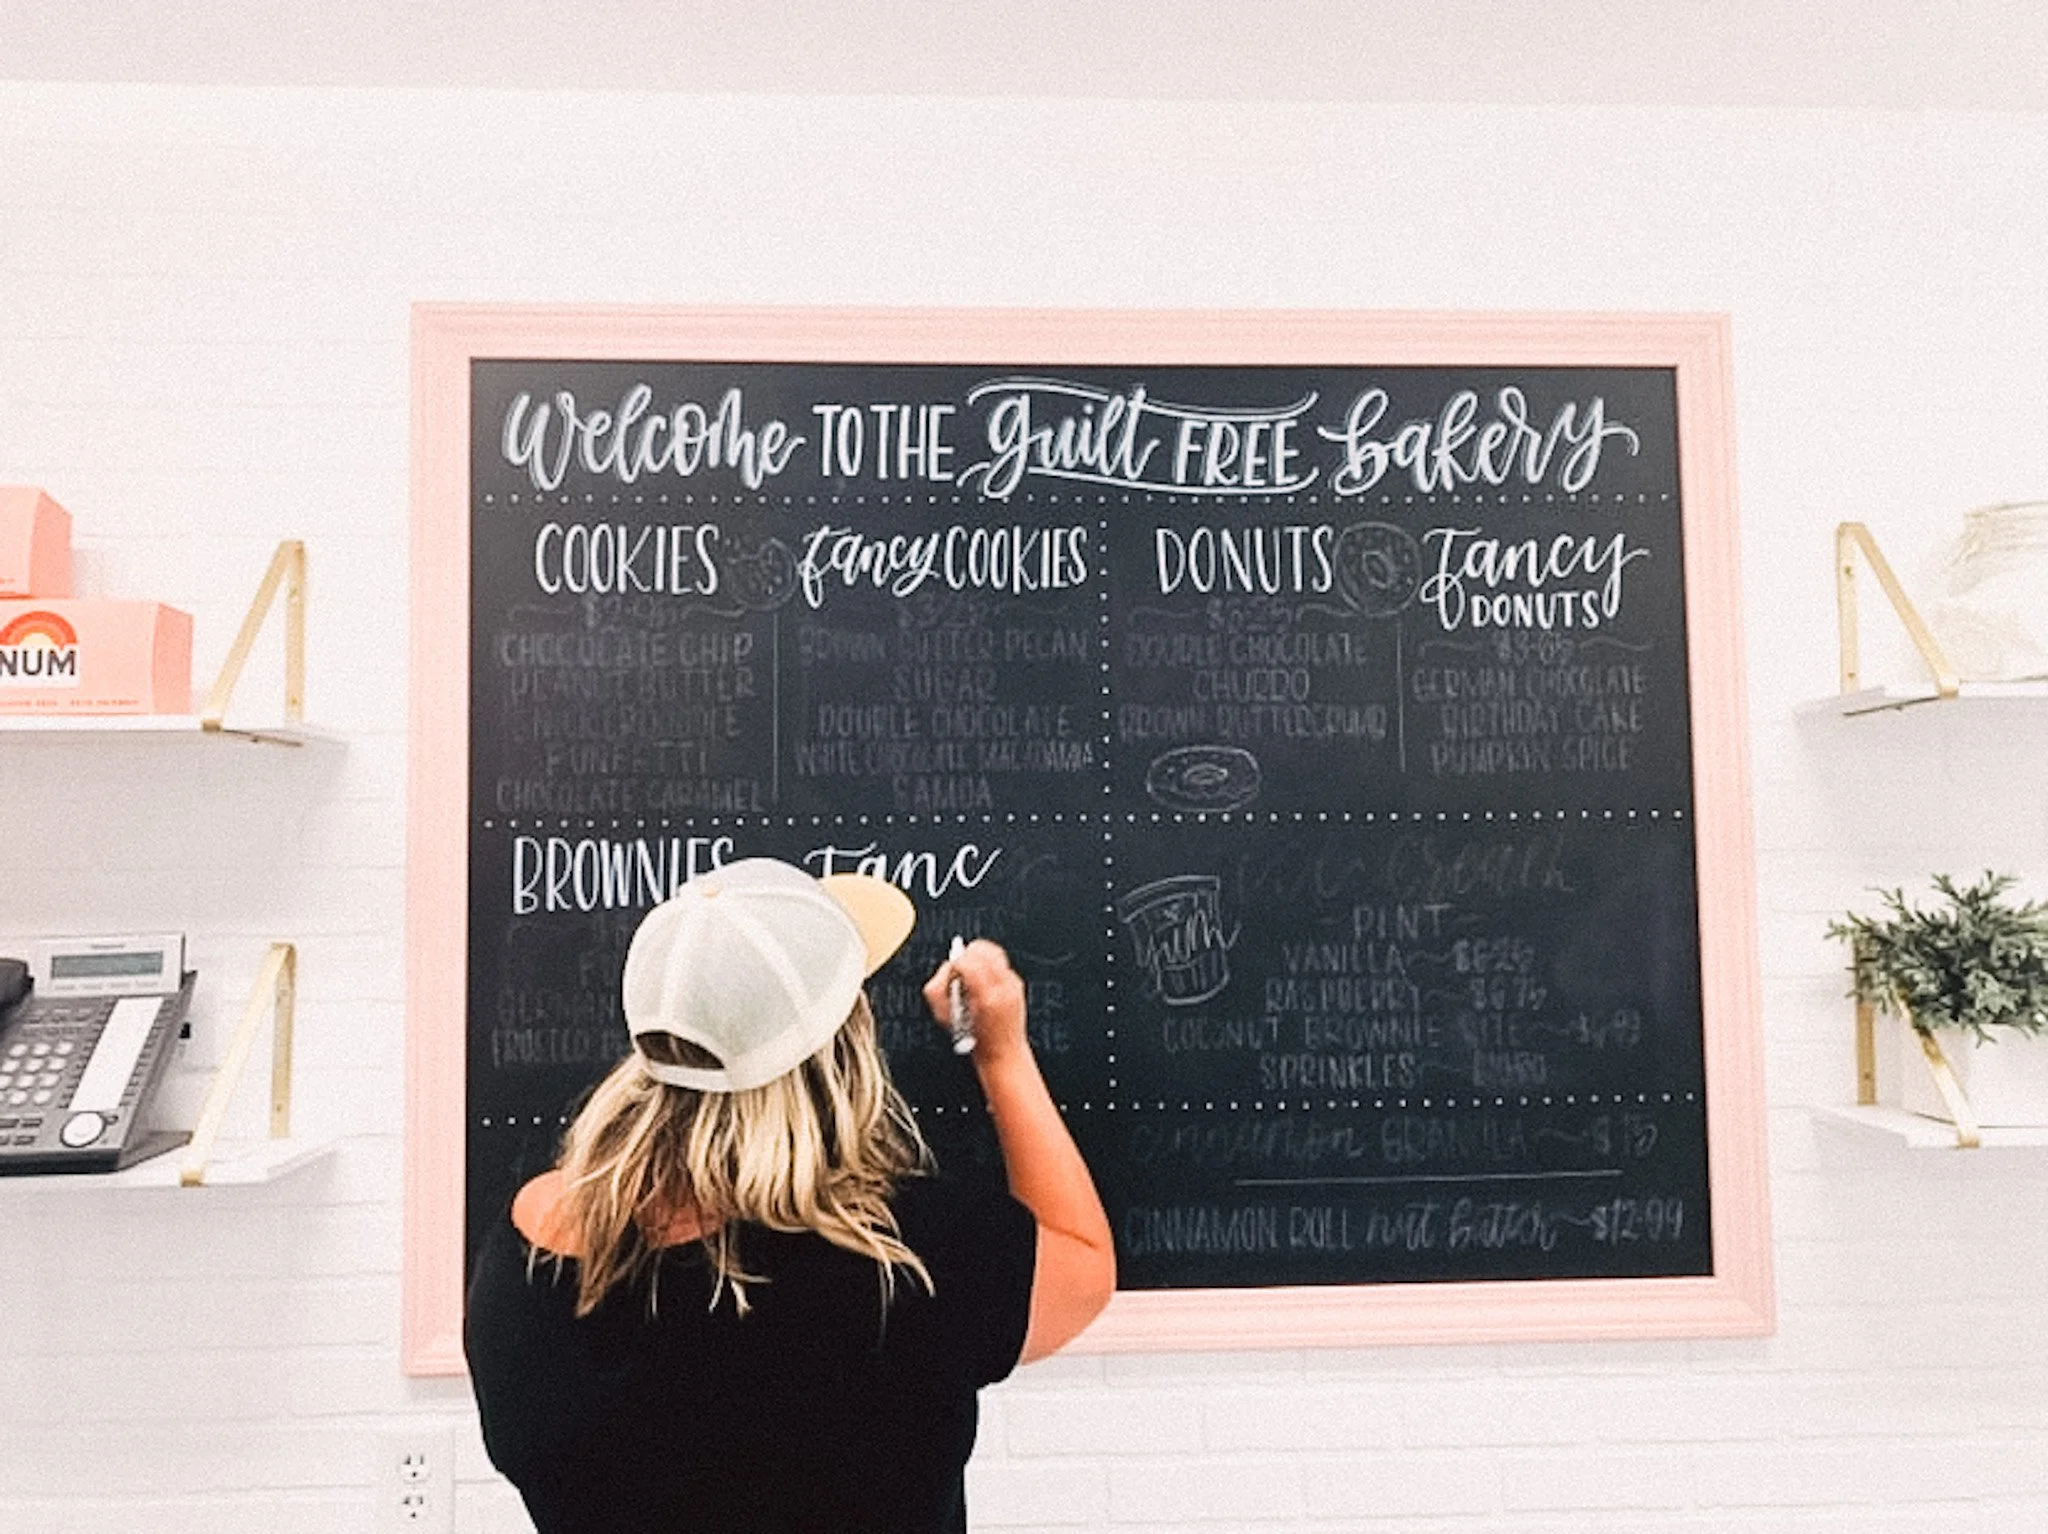 Welcome TO THE guilt FREE bakery
COOKIES
CHOCOLATE CHIP
PEANUT BUTTER
SNICKERDOODLE
FUNFETTI
CHOCOLATE CARAMEL
fancy COOKIES
BROWN BUTTER PECAN
SUGAR
DOUBLE CHOCOLATE
WHITE CHOCOLATE MACADAMIA
SAMOA
DONUTS
DOUBLE CHOCOLATE
CHURRO
BROWN BUTTER CRUMB
fancy
DONUTS
GERMAN CHOCOLATE
BIRTHDAY CAKE
PUMPKIN SPICE
BROWNIES
GERMAN
FROSTED
Fanc
PINT
VANILLA
RASPBERRY
COCONUT BROWNIE BITE
SPRINKLES
num
cinnamon GRANOLA
CINNAMON ROLL nut butter $12.99
NUM